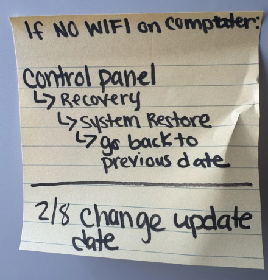 If NO WIFI on computer:
control panel
↳ Recovery
↳ System Restore
↳ go back to
previous date
2/8 change update
date